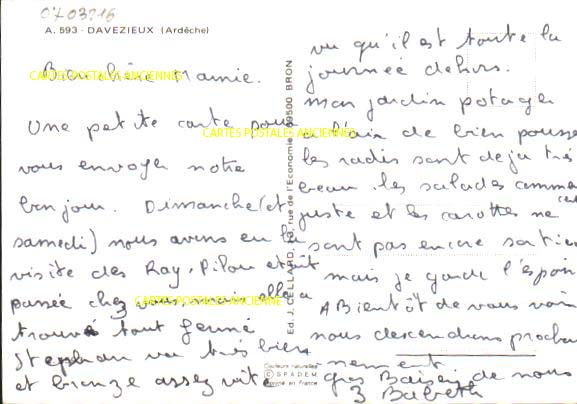 0703216
A. 593 - DAVEZIEUX (Ardèche)
Bien chère Mamie.
Une petite carte pour
vous envoyer notre
bonjour. Dimanche (et
samedi) nous avons eu la
visite des Ray. Pilou était
passée chez vous mais elle a
trouvé tout fermé
Stephan va très bien
et bronze assez vite
vu qu'il est toute la
journée dehors.
mon jardin potager
a l'air de bien pousser
les radis sont deja très
beau. les salades commencent
juste et les carottes ne
sont pas encore sorties
mais je garde l'espoir
A Bientôt de vous voir
nous descendons prochai
nement.
gros Baisers de nous
3 Babeth
Ed. J. CELLARD, rue de l'Economie 69500 BRON
Couleurs naturelles
© S.P.A.D.E.M.
Imprimé en France
CARTES POSTALES ANCIENNES
CARTES POSTALES ANCIENNES
CARTES POSTALES ANCIENNES